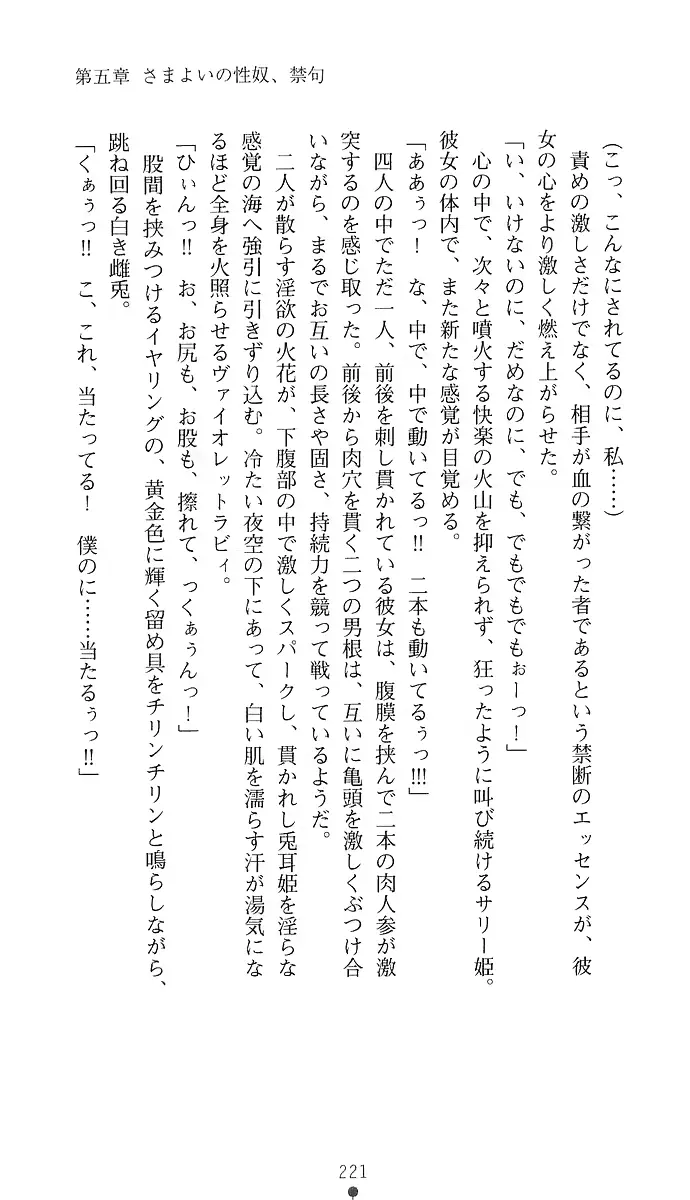 第五章 さまよいの性奴、禁句
(こっ、こんなにされてるのに、私……)
責めの激しさだけでなく、相手が血の繋がった者であるという禁断のエッセンスが、彼
女の心をより激しく燃え上がらせた。
「い、いけないのに、だめなのに、でも、でもでもでもぉーっ！」
心の中で、次々と噴火する快楽の火山を抑えられず、狂ったように叫び続けるサリー姫。
彼女の体内で、また新たな感覚が目覚める。
「ああぅっ！　な、中で、中で動いてるっ!!　二本も動いてるぅっ!!!」
四人の中でただ一人、前後を刺し貫かれている彼女は、腹膜を挟んで二本の肉人参が激
突するのを感じ取った。前後から肉穴を貫く二つの男根は、互いに亀頭を激しくぶつけ合
いながら、まるでお互いの長さや固さ、持続力を競って戦っているようだ。
二人が散らす淫欲の火花が、下腹部の中で激しくスパークし、貫かれし兎耳姫を淫らな
感覚の海へ強引に引きずり込む。冷たい夜空の下にあって、白い肌を濡らす汗が湯気にな
るほど全身を火照らせるヴァイオレットラビィ。
「ひぃんっ!!　お、お尻も、お股も、擦れて、っくぁぅんっ！」
股間を挟みつけるイヤリングの、黄金色に輝く留め具をチリンチリンと鳴らしながら、
跳ね回る白き雌兎。
「くぁぅっ!!　こ、これ、当たってる！　僕のに……当たるぅっ!!」
221